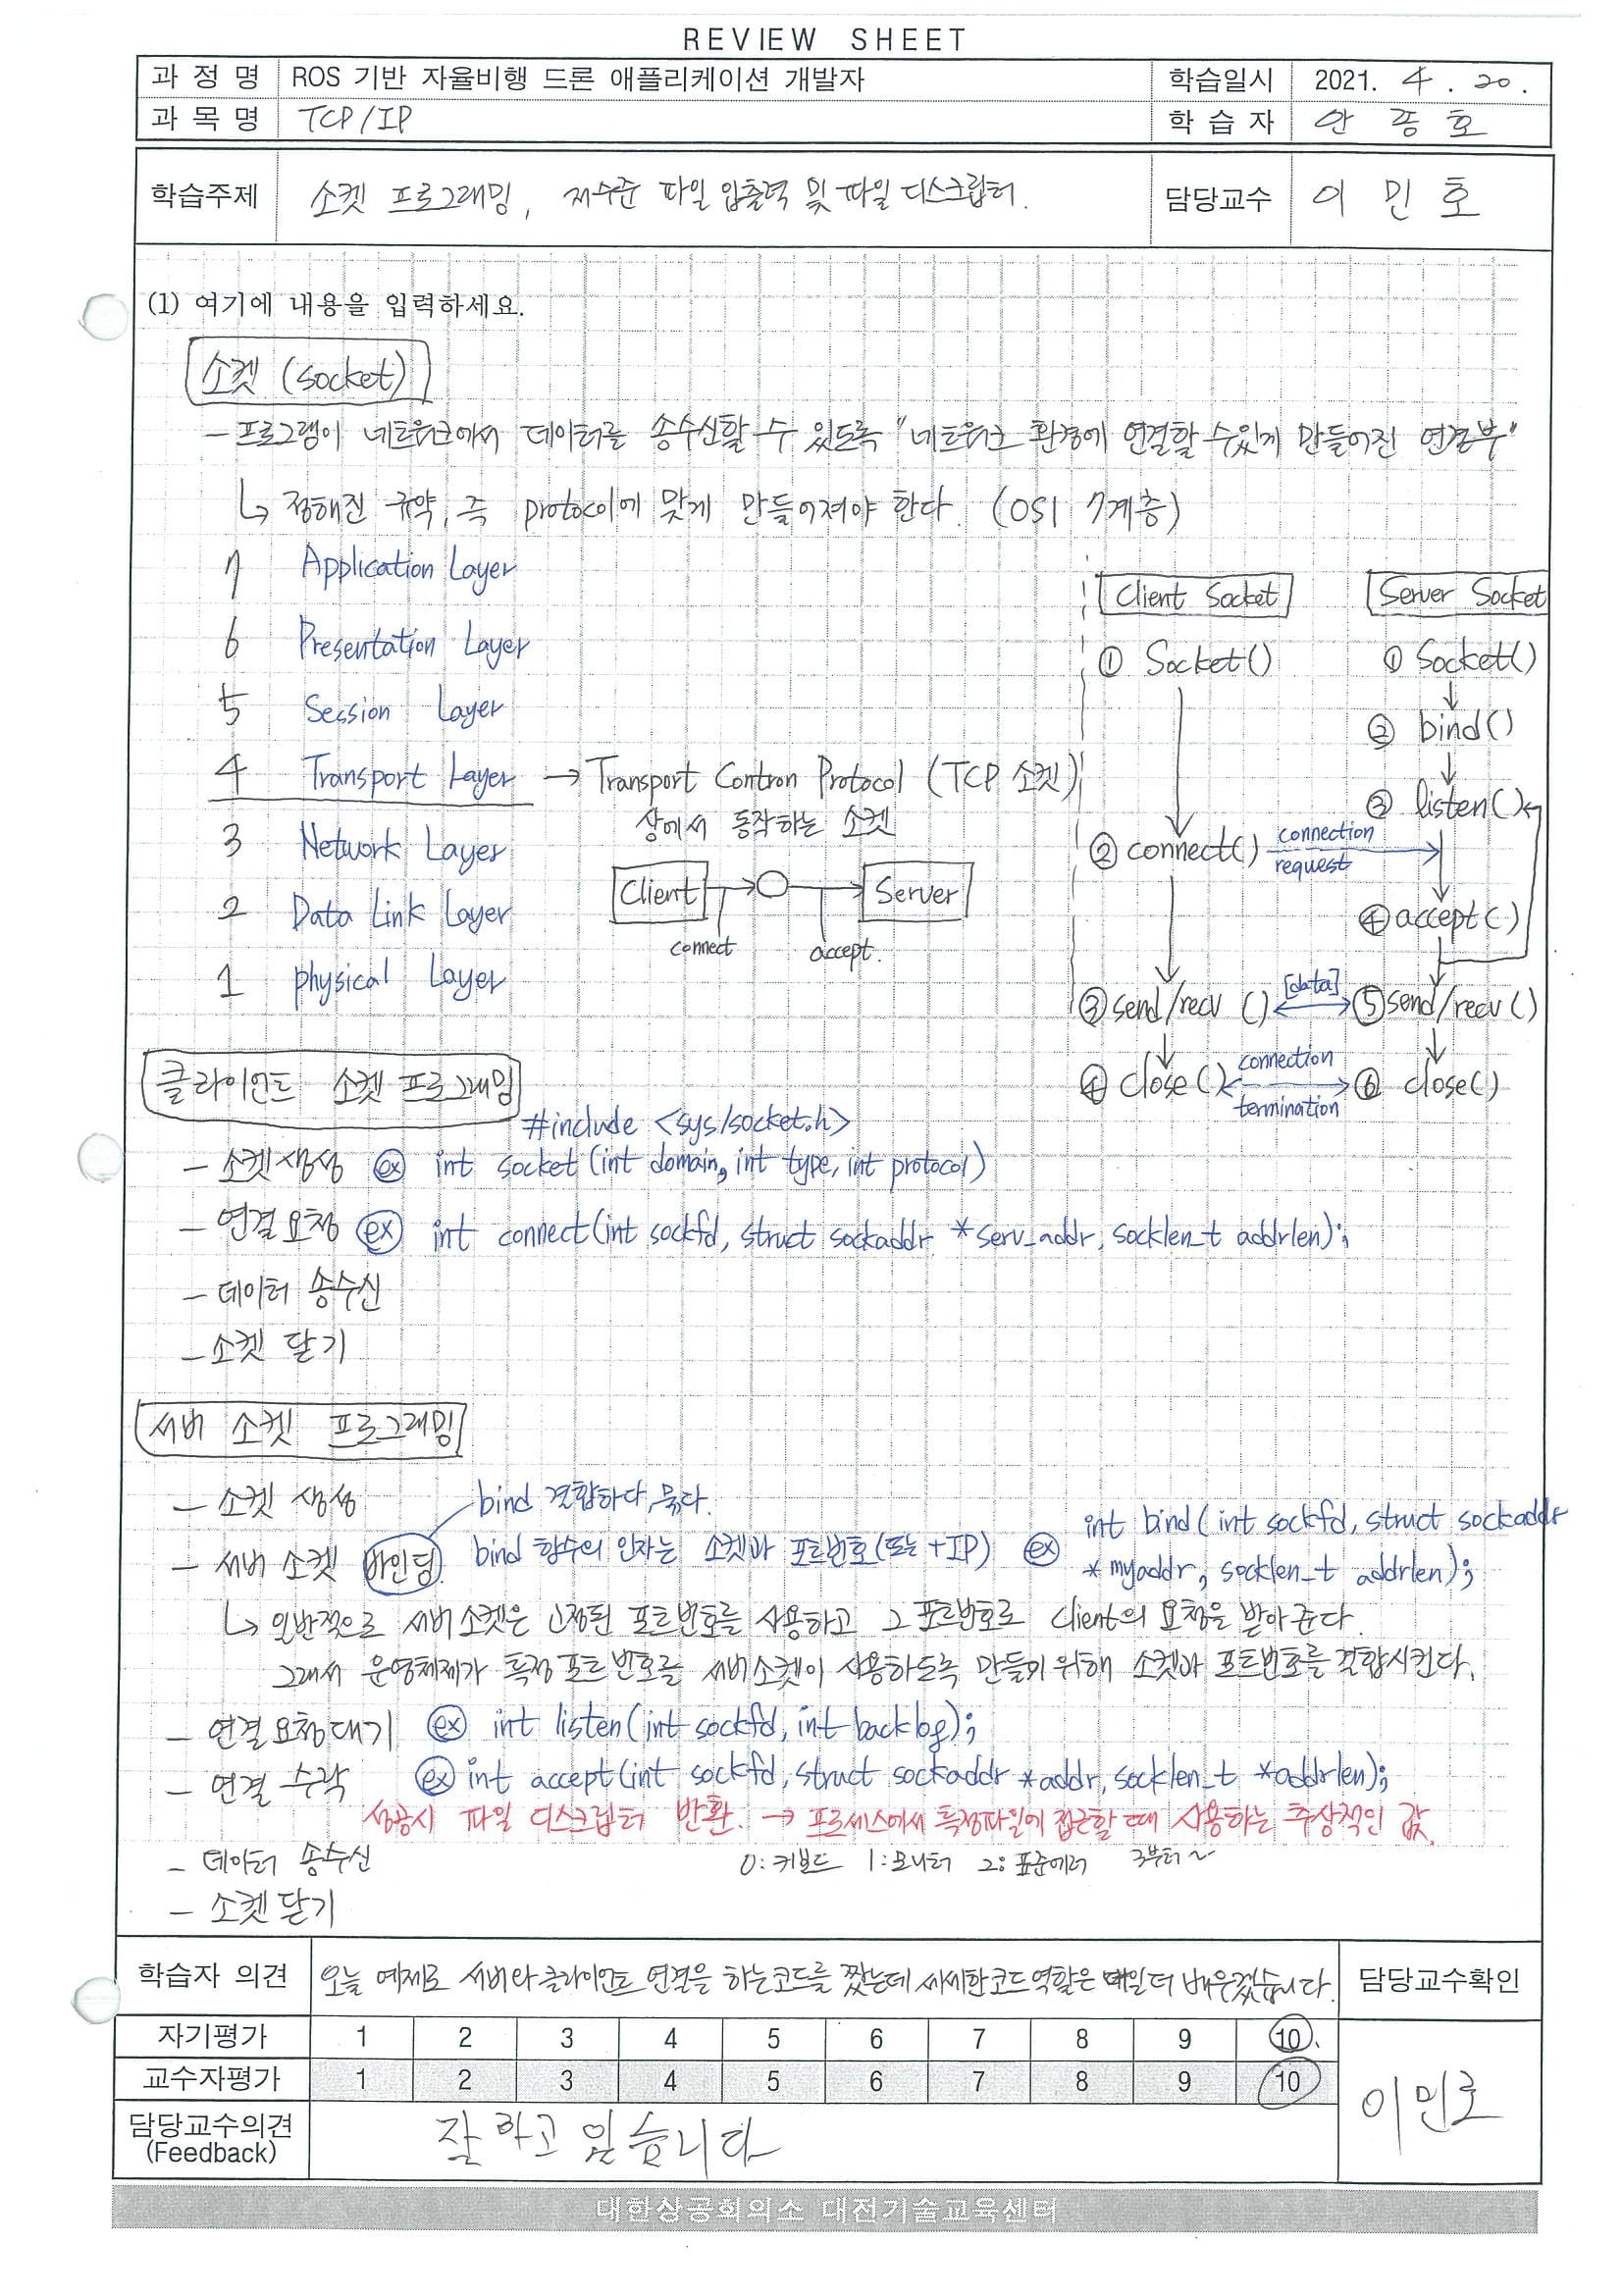 REVIEW SHEET
과 정 명 ROS 기반 자율비행 드론 애플리케이션 개발자 학습일시 2021. 4. 20.
과 목 명 TCP/IP 학 습 자 안 종 호
학습주제 소켓 프로그래밍, 저수준 파일 입출력 및 파일 디스크립터. 담당교수 이 민 호
(1) 여기에 내용을 입력하세요.
소켓 (socket)
- 프로그램이 네트워크에서 데이터를 송수신할 수 있도록 "네트워크 환경에 연결할 수있게 만들어진 연결부"
↳ 정해진 규약, 즉 protocol에 맞게 만들어져야 한다. (OSI 7계층)
7 Application Layer
6 Presentation Layer
5 Session Layer
4 Transport Layer → Transport Contron Protocol (TCP 소켓)
상에서 동작하는 소켓
3 Network Layer
2 Data Link Layer
1 physical Layer
Client Server
connect accept.
Client Socket
① Socket()
② connect()
③ send/recv ()
④ close()
connection
request
[data]
connection
termination
Server Socket
① Socket()
② bind()
③ listen()
④ accept()
⑤ send/recv()
⑥ close()
클라이언트 소켓 프로그래밍
#include <sys/socket.h>
- 소켓생성 ex int socket (int domain, int type, int protocol)
- 연결 요청 ex int connect(int sockfd, struct sockaddr *serv_addr, socklen_t addrlen);
- 데이터 송수신
- 소켓 닫기
서버 소켓 프로그래밍
- 소켓 생성 bind 결합하다, 묶다.
- 서버 소켓 바인딩. bind 함수의 인자는 소켓과 포트번호(또는 +IP) ex int bind( int sockfd, struct sockaddr
*myaddr, socklen_t addrlen);
↳ 일반적으로 서버소켓은 고정된 포트번호를 사용하고 그 포트번호로 Client의 요청을 받아준다.
그래서 운영체제가 특정포트번호를 서버소켓이 사용하도록 만들기 위해 소켓과 포트번호를 결합시킨다.
- 연결 요청대기 ex int listen(int sockfd, int backlog);
- 연결 수락 ex int accept(int sockfd, struct sockaddr *addr, socklen_t *addrlen);
성공시 파일 디스크립터 반환. → 프로세스에서 특정파일에 접근할 때 사용하는 추상적인 값.
- 데이터 송수신 0: 키보드 1: 모니터 2: 표준에러 3부터~
- 소켓닫기
학습자 의견 오늘 예제로 서버와 클라이언트 연결을 하는코드를 짰는데 세세한코드역할은 매일더 배우겠습니다. 담당교수확인
자기평가 1 2 3 4 5 6 7 8 9 10
교수자평가 1 2 3 4 5 6 7 8 9 10
담당교수의견
(Feedback) 잘하고 있습니다 이민호
대한상공회의소 대전기술교육센터